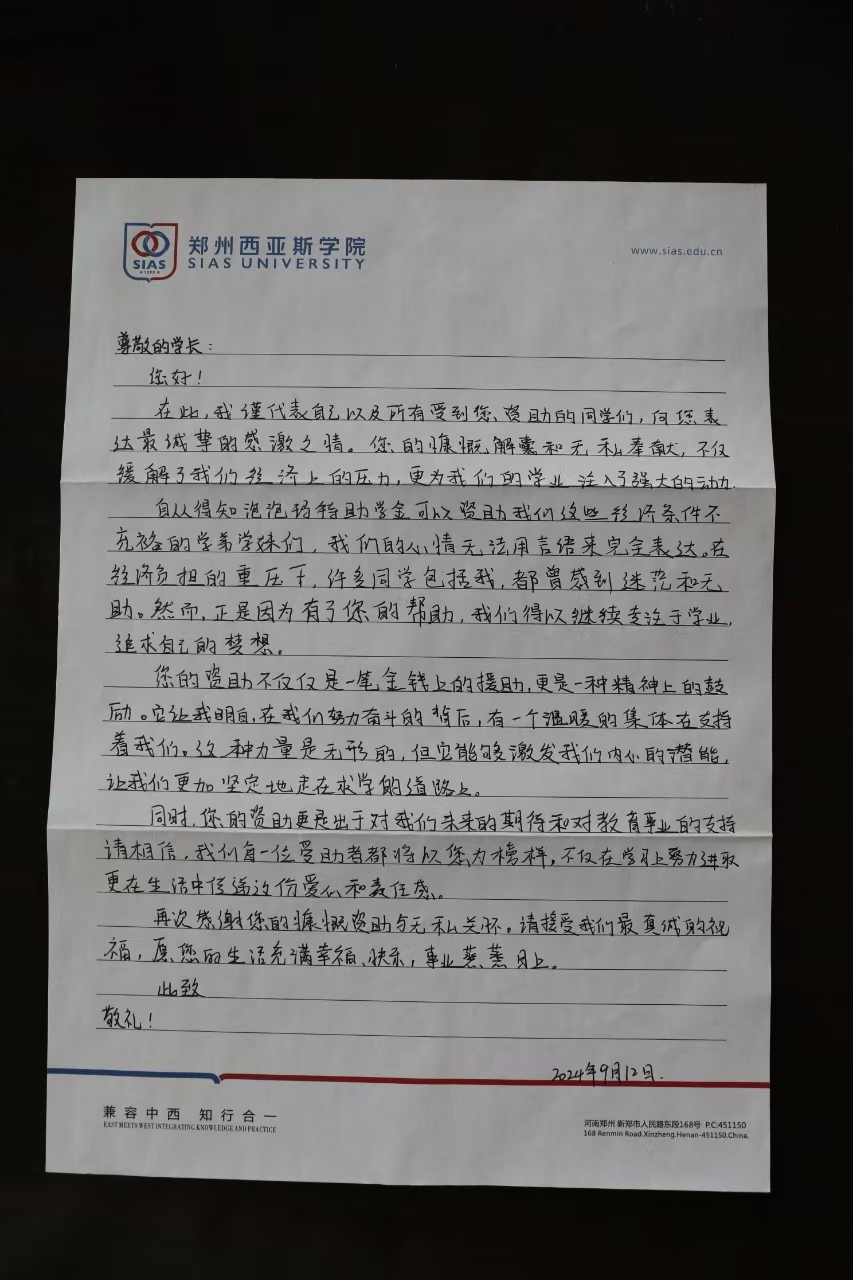 郑州西亚斯学院
SIAS UNIVERSITY
SIAS
1998
www.sias.edu.cn
尊敬的学长：
您好！
在此，我谨代表自己以及所有受到您资助的同学们，向您表
达最诚挚的感激之情。您的慷慨解囊和无私奉献，不仅
缓解了我们经济上的压力，更为我们的学业注入了强大的动力.
自从得知泡泡玛特助学金可以资助我们这些经济条件不
充裕的学弟学妹们，我们的心情无法用言语来完全表达。在
经济负担的重压下，许多同学包括我，都曾感到迷茫和无
助。然而，正是因为有了您的帮助，我们得以继续专注于学业，
追求自己的梦想。
您的资助不仅仅是一笔金钱上的援助，更是一种精神上的鼓
励。它让我明白，在我们努力奋斗的背后，有一个温暖的集体在支持
着我们。这种力量是无形的，但它能够激发我们内心的潜能，
让我们更加坚定地走在求学的道路上。
同时，您的资助更是出于对我们未来的期待和对教育事业的支持
请相信，我们每一位受助者都将以您为榜样，不仅在学习上努力进取
更在生活中传递这份爱心和责任感。
再次感谢您的慷慨资助与无私关怀。请接受我们最真诚的祝
福，愿您的生活充满幸福、快乐，事业蒸蒸日上。
此致
敬礼！
2024年9月12日.
兼容中西 知行合一
EAST MEETS WEST INTEGRATING KNOWLEDGE AND PRACTICE
河南郑州 新郑市人民路东段168号 P.C:451150
168 Renmin Road.Xinzheng.Henan-451150.China.